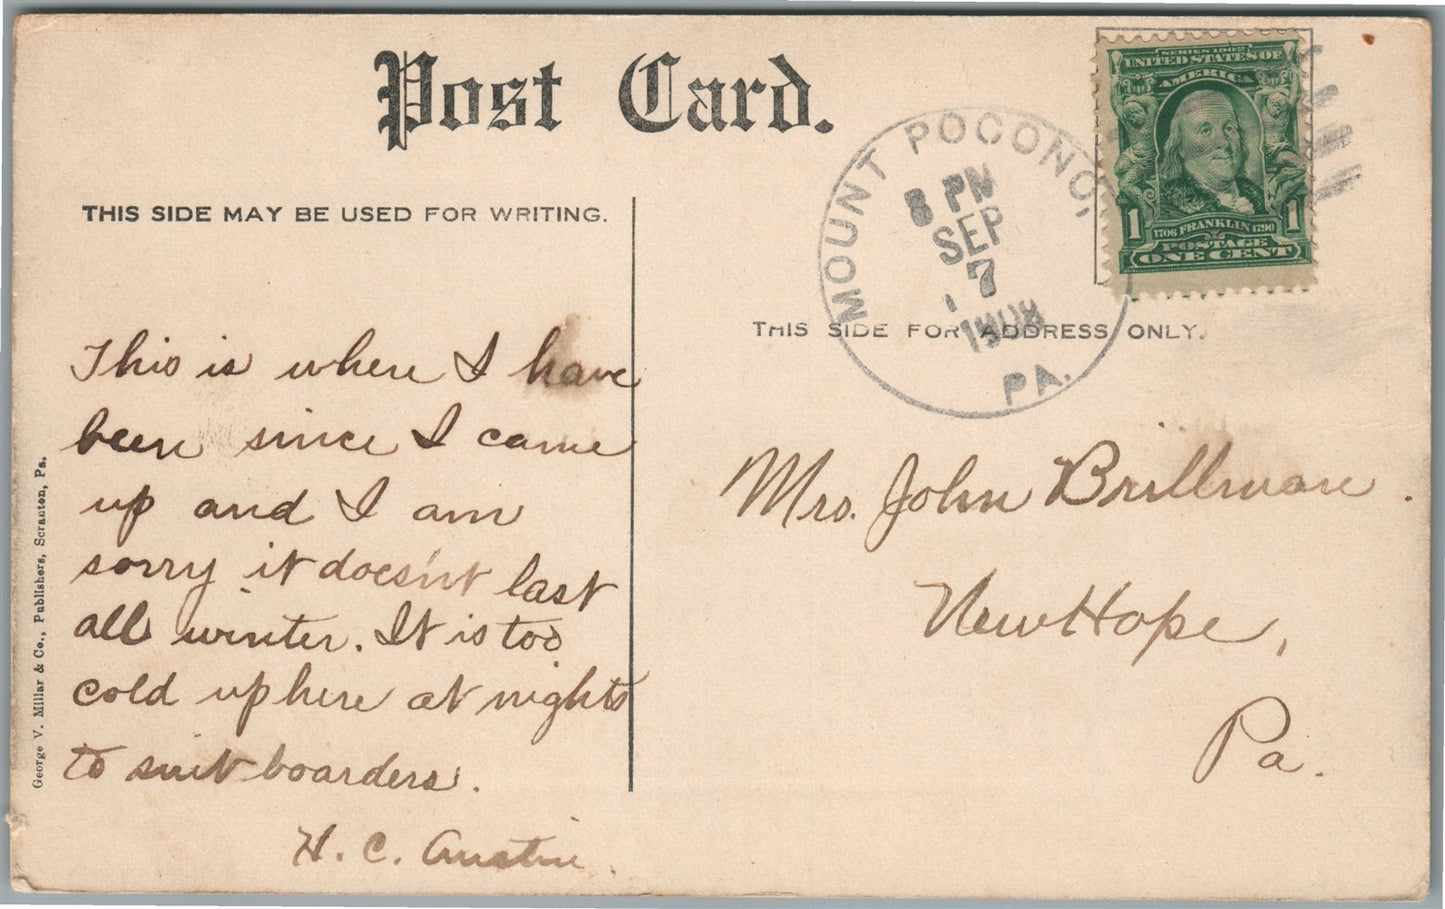 Post Card.
THIS SIDE MAY BE USED FOR WRITING.
This is where I have
been since I came
up and I am
sorry it doesn't last
all winter. It is too
cold up here at nights
to suit boarders.
H. C. Austin
George V. Millar & Co., Publishers, Scranton, Pa.
MOUNT POCONO,
8 PM
SEP
7
1908
PA.
SERIES 1902
UNITED STATES OF
AMERICA
1 1706 FRANKLIN 1790 1
POSTAGE
ONE CENT
THIS SIDE FOR ADDRESS ONLY.
Mrs. John Brillman.
New Hope,
Pa.